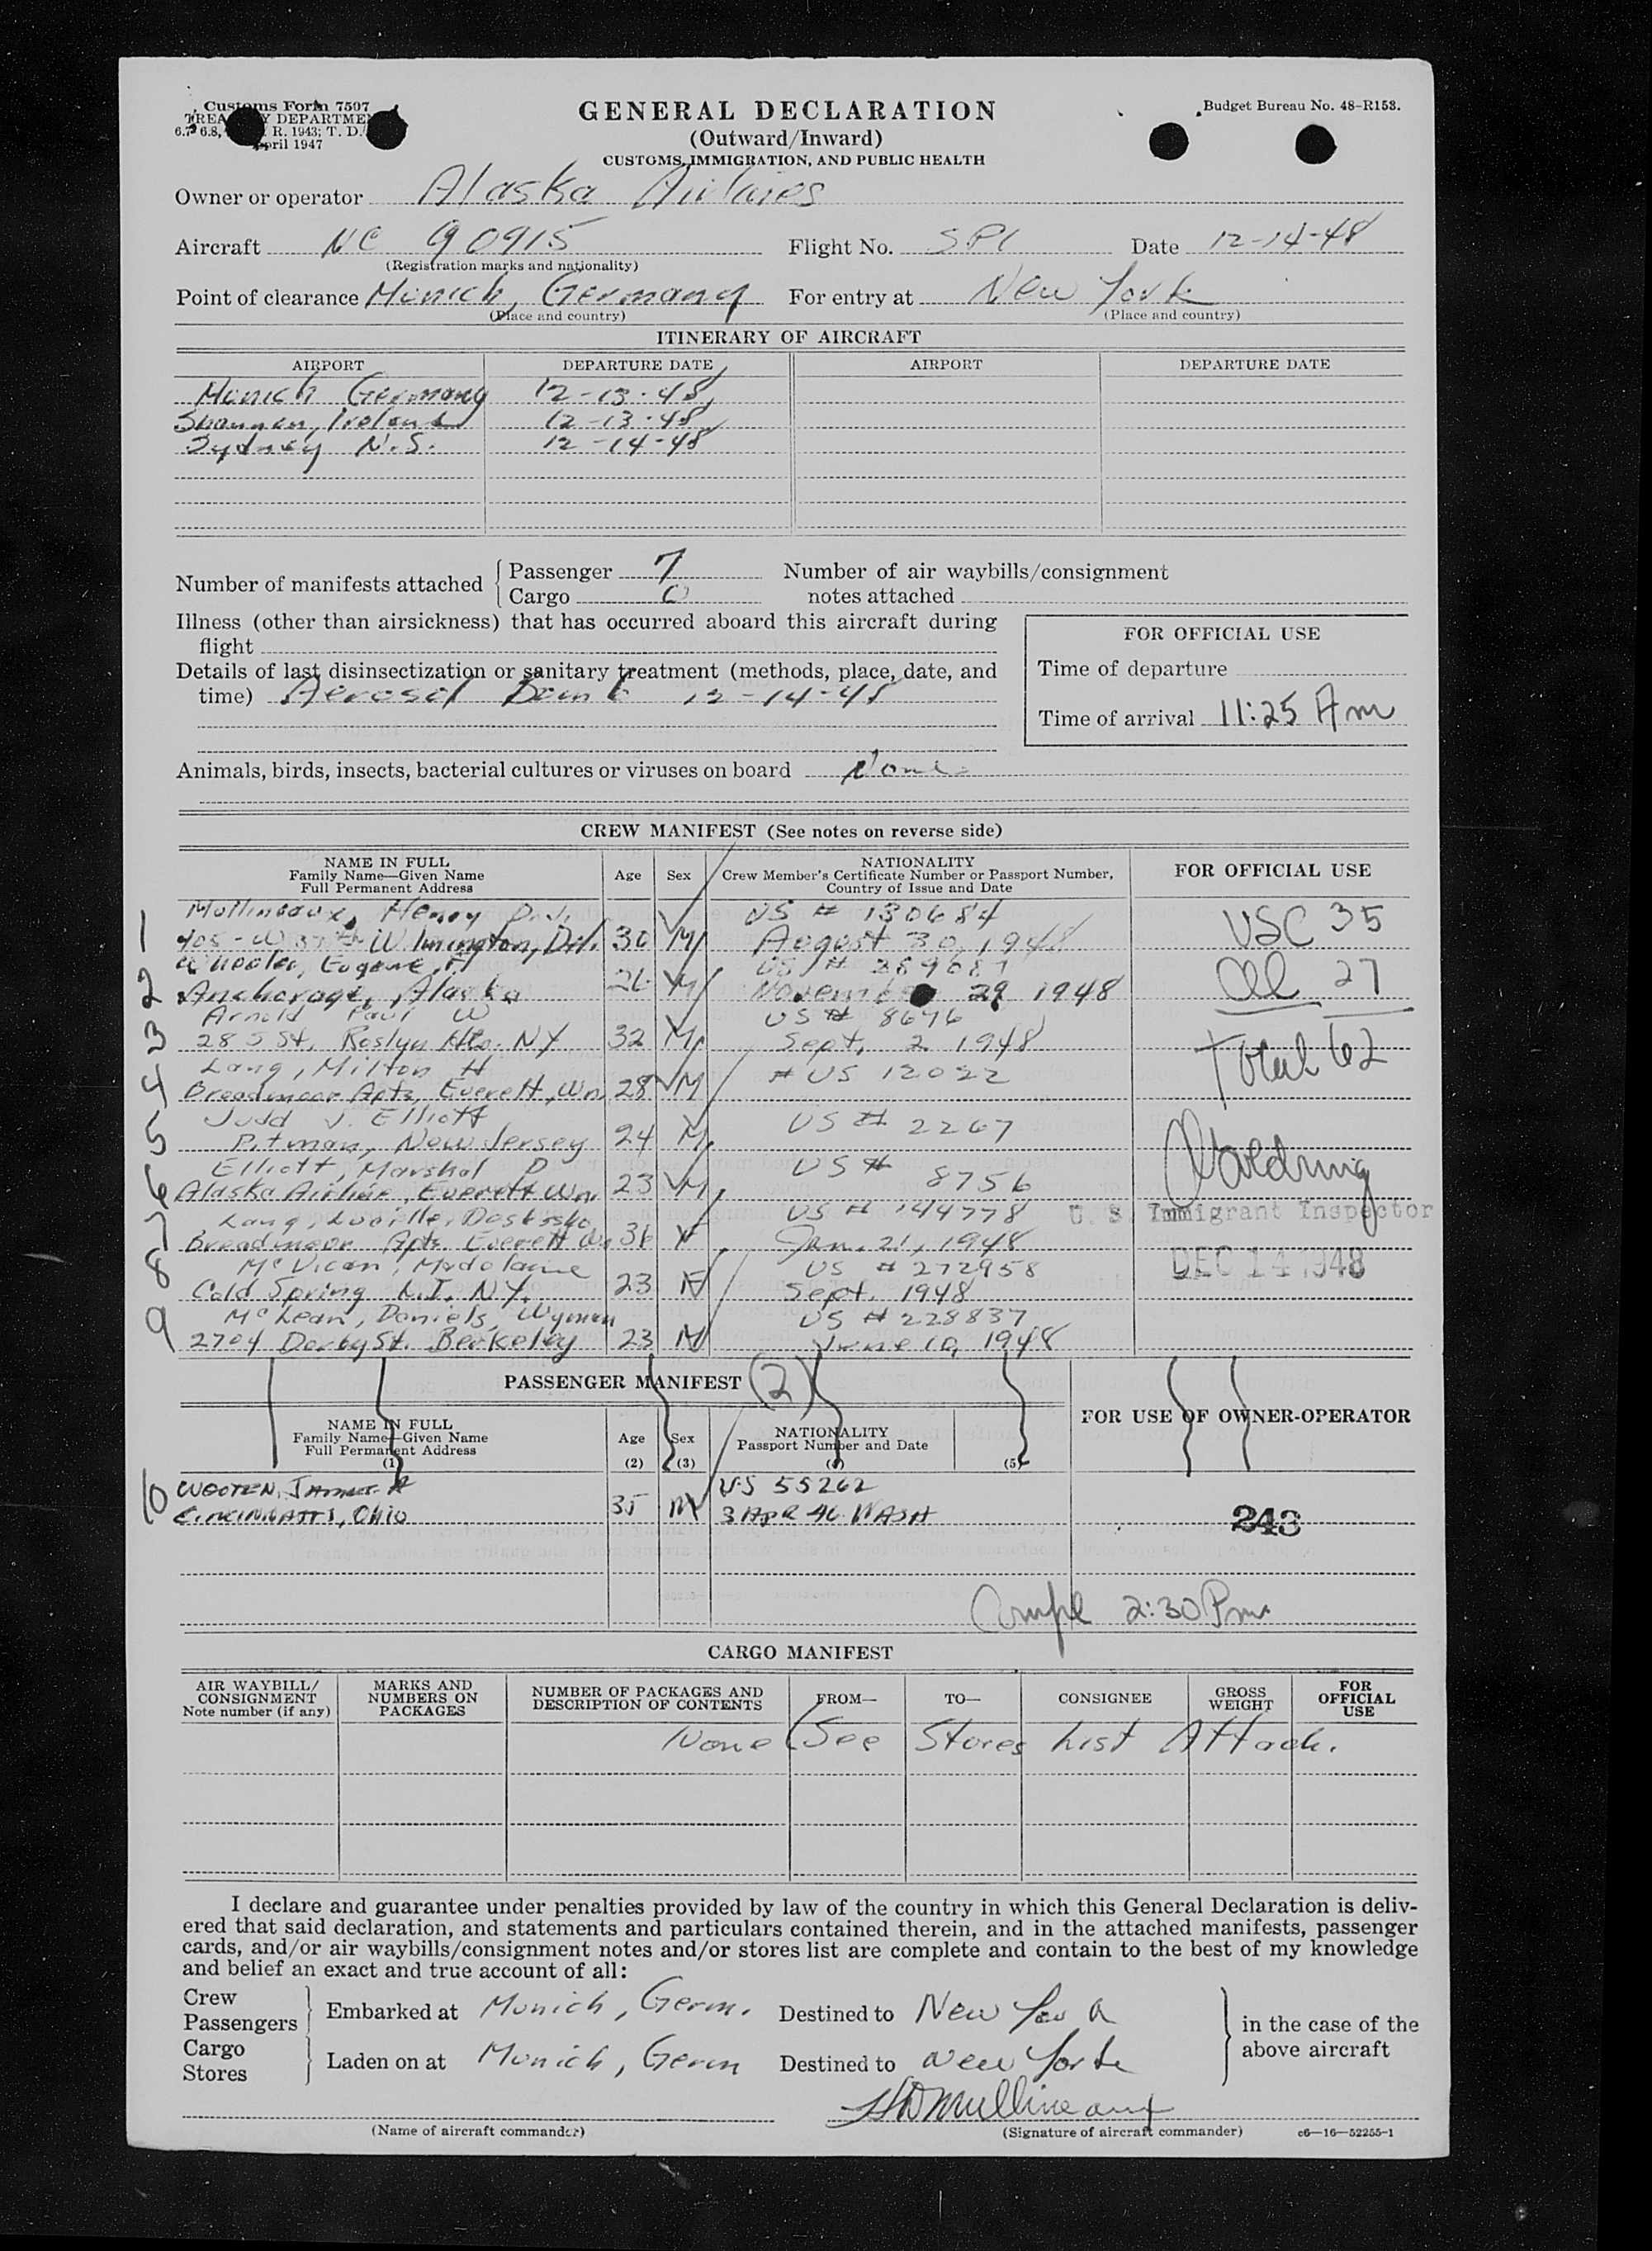 Customs Form 7507
TREASURY DEPARTMENT
6.7, 6.8, R. 1943; T. D.
April 1947
GENERAL DECLARATION
(Outward/Inward)
CUSTOMS, IMMIGRATION, AND PUBLIC HEALTH
Budget Bureau No. 48-R153.
Owner or operator Alaska Airlines
Aircraft NC 90915 Flight No. SP1 Date 12-14-48
(Registration marks and nationality)
Point of clearance Munich, Germany For entry at New York
(Place and country) (Place and country)
ITINERARY OF AIRCRAFT
AIRPORT DEPARTURE DATE AIRPORT DEPARTURE DATE
Munich Germany 12-13-48
Shannon, Ireland 12-13-48
Sydney N.S. 12-14-48
Number of manifests attached Passenger 7 Number of air waybills/consignment
Cargo 0 notes attached
Illness (other than airsickness) that has occurred aboard this aircraft during
flight
FOR OFFICIAL USE
Details of last disinsectization or sanitary treatment (methods, place, date, and
time) Aerosol Bomb 12-14-48
Time of departure
Time of arrival 11:25 Am
Animals, birds, insects, bacterial cultures or viruses on board None
CREW MANIFEST (See notes on reverse side)
NAME IN FULL
Family Name—Given Name
Full Permanent Address
Age Sex
NATIONALITY
Crew Member's Certificate Number or Passport Number,
Country of Issue and Date
FOR OFFICIAL USE
1 Mullineaux, Henry D. US # 130684
405-W 37th Wilmington, Del. 30 M August 30, 1948
USC 35
2 Wheeler, Eugene US # 389687
Anchorage, Alaska 26 M November 29 1948
Al 27
3 Arnold Paul W US # 8696
28 S St, Roslyn Hts. NY 32 M Sept. 2 1948
Total 62
4 Lang, Milton H # US 12022
Broadmoor Apts, Everett, Wn 28 M
5 Judd J. Elliott US # 2267
Pitman, New Jersey 24 M
6 Elliott, Marshal D US # 8756
Alaska Airline, Everett Wn. 23 M
7 Lang, Lucille US # 144778
Broadmoor Apts. Everett Wn 31 F Jan. 21, 1948
U. S. Immigrant Inspector
8 McVican, Madolaine US # 272958
Cold Spring L.I. N.Y. 23 F Sept. 1948
DEC 14 1948
9 McLean, Daniels, Wyman US # 228837
2704 Derby St. Berkeley 23 M June 10, 1948
PASSENGER MANIFEST (2)
NAME IN FULL
Family Name—Given Name
Full Permanent Address
(1)
Age
(2)
Sex
(3)
NATIONALITY
Passport Number and Date
(4) (5)
FOR USE OF OWNER-OPERATOR
10 WOOTEN, James A US 55262
CINCINNATTI, OHIO 35 M 3 APR 46 WASH
243
Compl 2:30 Pm
CARGO MANIFEST
AIR WAYBILL/
CONSIGNMENT
Note number (if any)
MARKS AND
NUMBERS ON
PACKAGES
NUMBER OF PACKAGES AND
DESCRIPTION OF CONTENTS
FROM— TO— CONSIGNEE
GROSS
WEIGHT
FOR
OFFICIAL
USE
None (See Stores List Attach.
I declare and guarantee under penalties provided by law of the country in which this General Declaration is deliv-
ered that said declaration, and statements and particulars contained therein, and in the attached manifests, passenger
cards, and/or air waybills/consignment notes and/or stores list are complete and contain to the best of my knowledge
and belief an exact and true account of all:
Crew
Passengers Embarked at Munich, Germ. Destined to New York
Cargo
Stores Laden on at Munich, Germ Destined to New York
in the case of the
above aircraft
HD Mullineaux
(Name of aircraft commander) (Signature of aircraft commander) c6—16—52255-1